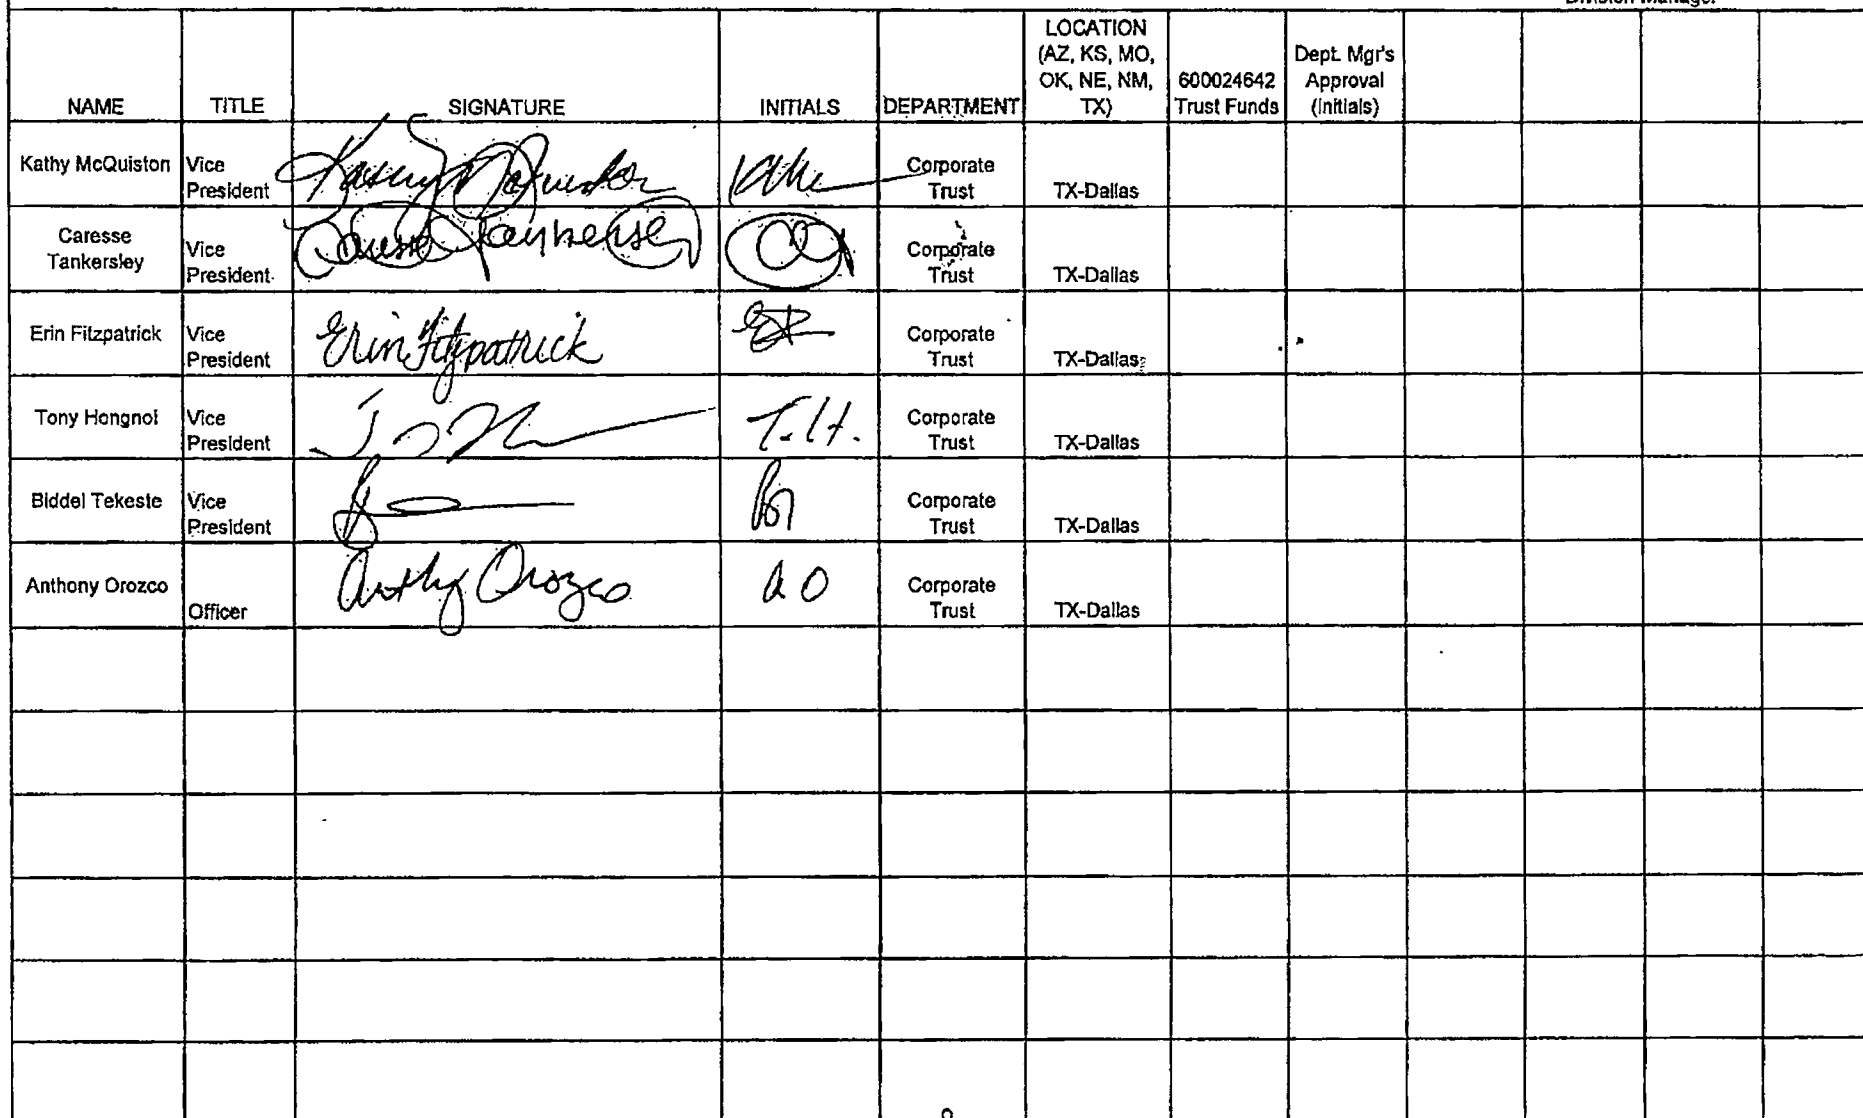 Division Manager
NAME TITLE SIGNATURE INITIALS DEPARTMENT LOCATION (AZ, KS, MO, OK, NE, NM, TX) 600024642 Trust Funds Dept. Mgr's Approval (Initials)
Kathy McQuiston Vice President Kathy McQuiston Corporate Trust TX-Dallas
Caresse Tankersley Vice President Caresse Tankersley Corporate Trust TX-Dallas
Erin Fitzpatrick Vice President Erin Fitzpatrick Corporate Trust TX-Dallas
Tony Hongnoi Vice President T.H. Corporate Trust TX-Dallas
Biddel Tekeste Vice President BT Corporate Trust TX-Dallas
Anthony Orozco Officer Anthy Orozco A O Corporate Trust TX-Dallas